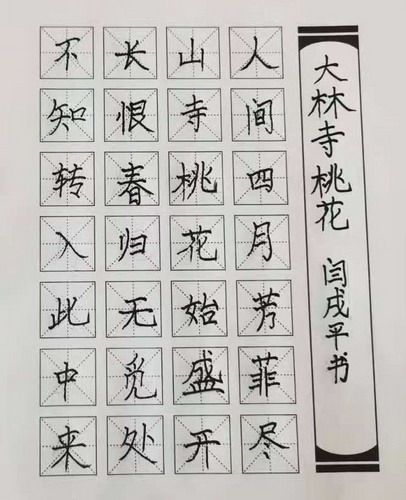 大林寺桃花 闫戌平书
人间四月芳菲尽
山寺桃花始盛开
长恨春归无觅处
不知转入此中来